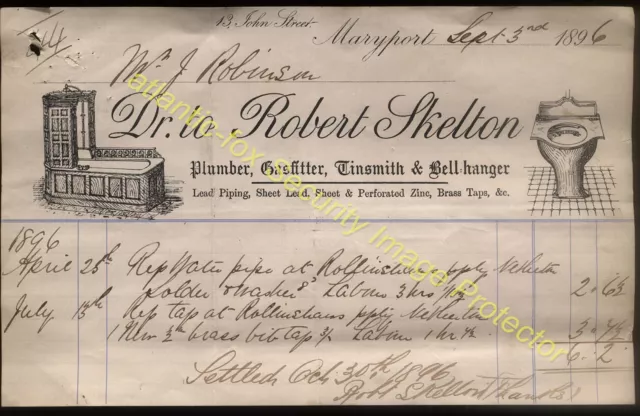 13, John Street.
Maryport Sept 3rd 1896
Mr J. Robinson
Dr. to Robert Skelton
Plumber, Gasfitter, Tinsmith & Bell-hanger
Lead Piping, Sheet Lead, Sheet & Perforated Zinc, Brass Taps, &c.
1896
April 25th Rep Water pipe at
Solder & Washer Labour 3 hrs 2 . 6½
July 13th Rep tap at
1 New brass bib tap Labour 1 hr 3 .
6 . 2
Settled Oct 30th 1896
Robt Skelton Thanks
atlantic-fox Security Image Protector